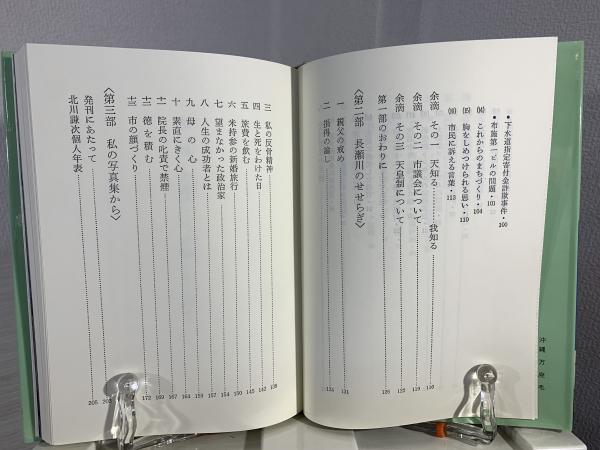 ・下水道指定寄付金詐欺事件・100
・布施第一ビルの問題・103
⒁ これからのまちづくり・104
⒂ 胸をしめつけられる思い・110
⒃ 市民に訴える言葉・113
余滴 その一 天知る……我知る 116
余滴 その二 市議会について 119
余滴 その三 天皇制について 122
第一部のおわりに 126
〈第二部 長瀬川のせせらぎ〉
一 親父の戒め 131
二 指得の論し 134
三 私の反骨精神 138
四 生と死をわけた日 142
五 旅費を飲む 145
六 米持参の新婚旅行 150
七 望まなかった政治家 154
八 人生の成功者とは 157
九 母の心 159
十 素直にきく心 164
十一 院長の叱責で禁煙 167
十二 徳を積む 169
十三 市の顔づくり 172
〈第三部 私の写真集から〉
発刊にあたって
北川謙次個人年表 205
沖縄万座毛